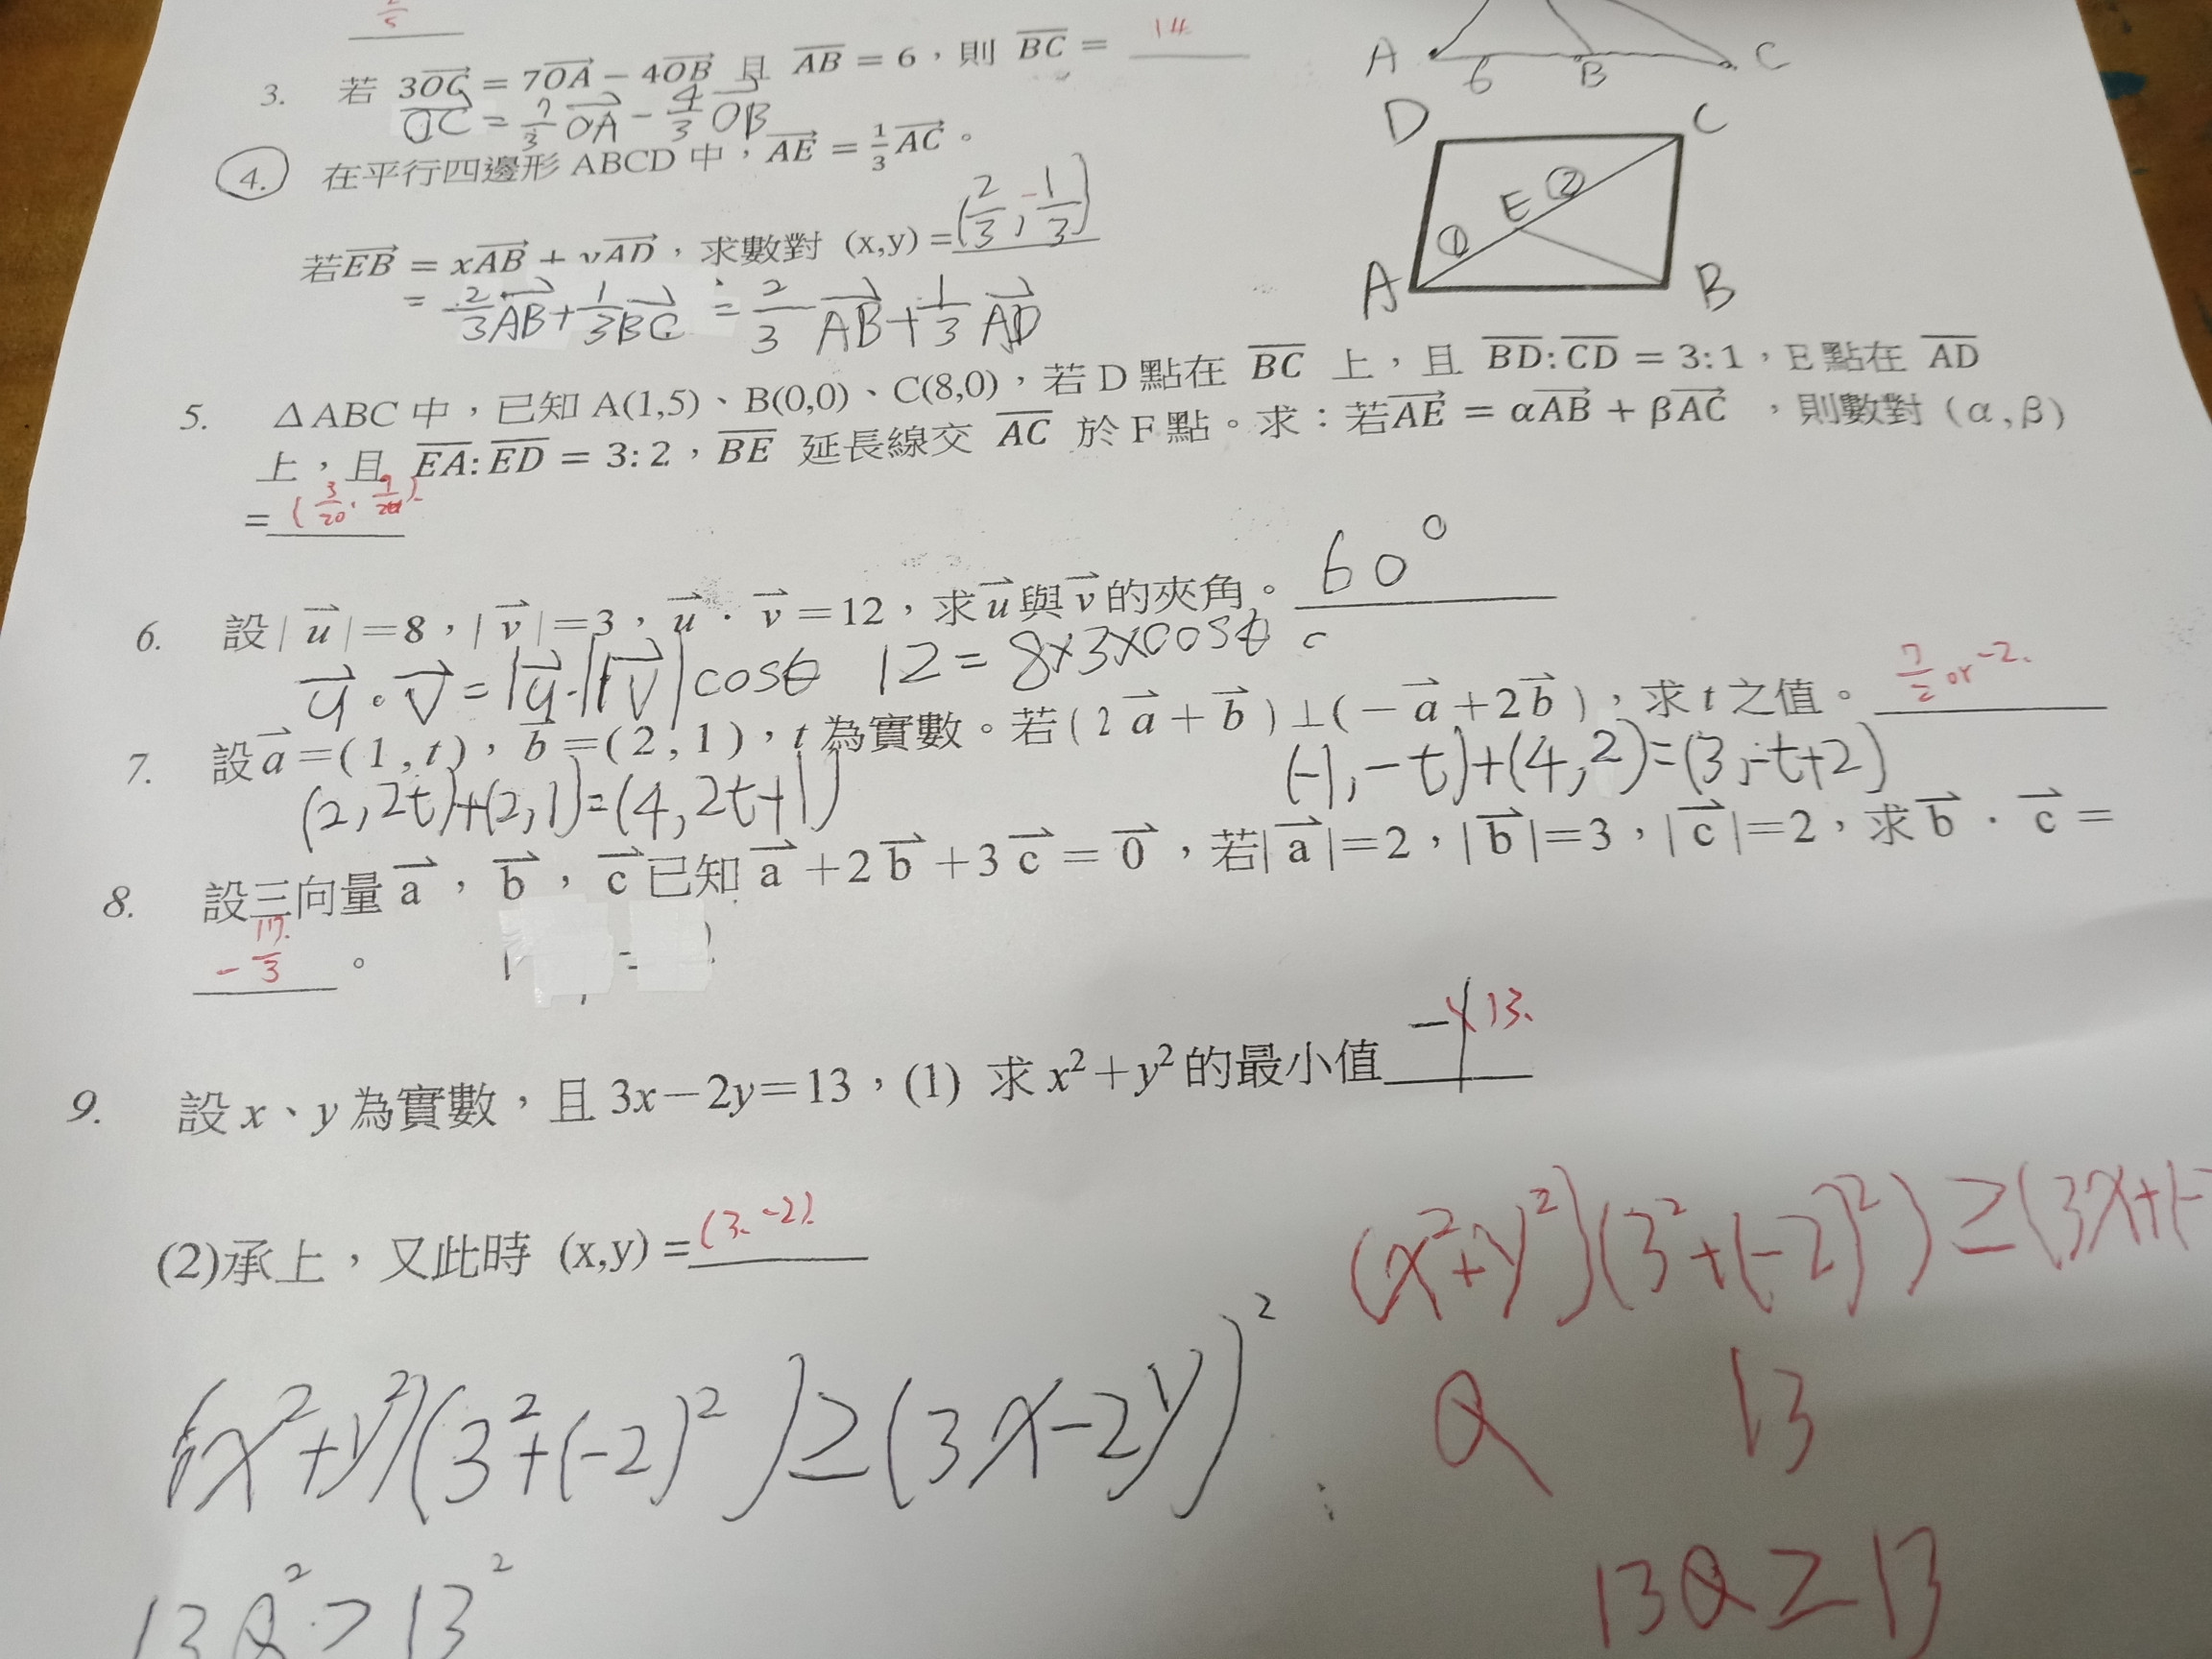 2/5
3. 若 3OC = 7OA − 4OB 且 AB = 6,則 BC = 14
OC = 7/3 OA − 4/3 OB
A 6 B C
4. 在平行四邊形 ABCD 中,AE = 1/3 AC。
D C
E ① ②
A B
若EB = xAB + yAD,求數對 (x,y) = (2/3, -1/3)
= 2/3 AB + 1/3 BC = 2/3 AB + 1/3 AD
5. ΔABC 中,已知 A(1,5)、B(0,0)、C(8,0),若 D 點在 BC 上,且 BD:CD = 3:1,E 點在 AD
上,且 EA:ED = 3:2,BE 延長線交 AC 於 F 點。求:若AE = αAB + βAC,則數對 (α,β)
= (3/20, 9/20)
6. 設|u|=8,|v|=3,u·v=12,求u與v的夾角。 60°
u·v = |u|·|v| cosθ 12 = 8×3×cosθ
7. 設a=(1,t),b=(2,1),t 為實數。若(2a+b)⊥(−a+2b),求 t 之值。 7/2 or -2.
(2,2t)+(2,1)=(4,2t+1) (-1,-t)+(4,2)=(3,-t+2)
8. 設三向量a,b,c已知a+2b+3c=0,若|a|=2,|b|=3,|c|=2,求b·c=
-17/3 。
9. 設 x、y 為實數,且 3x−2y=13,(1) 求 x²+y² 的最小值 13.
(2)承上,又此時 (x,y) = (3.-2).
(x²+y²)(3²+(-2)²) ≥ (3x+(-
(x²+y²)(3²+(-2)²) ≥ (3x-2y)²
Q 13
13Q ≥ 13
13Q² > 13²